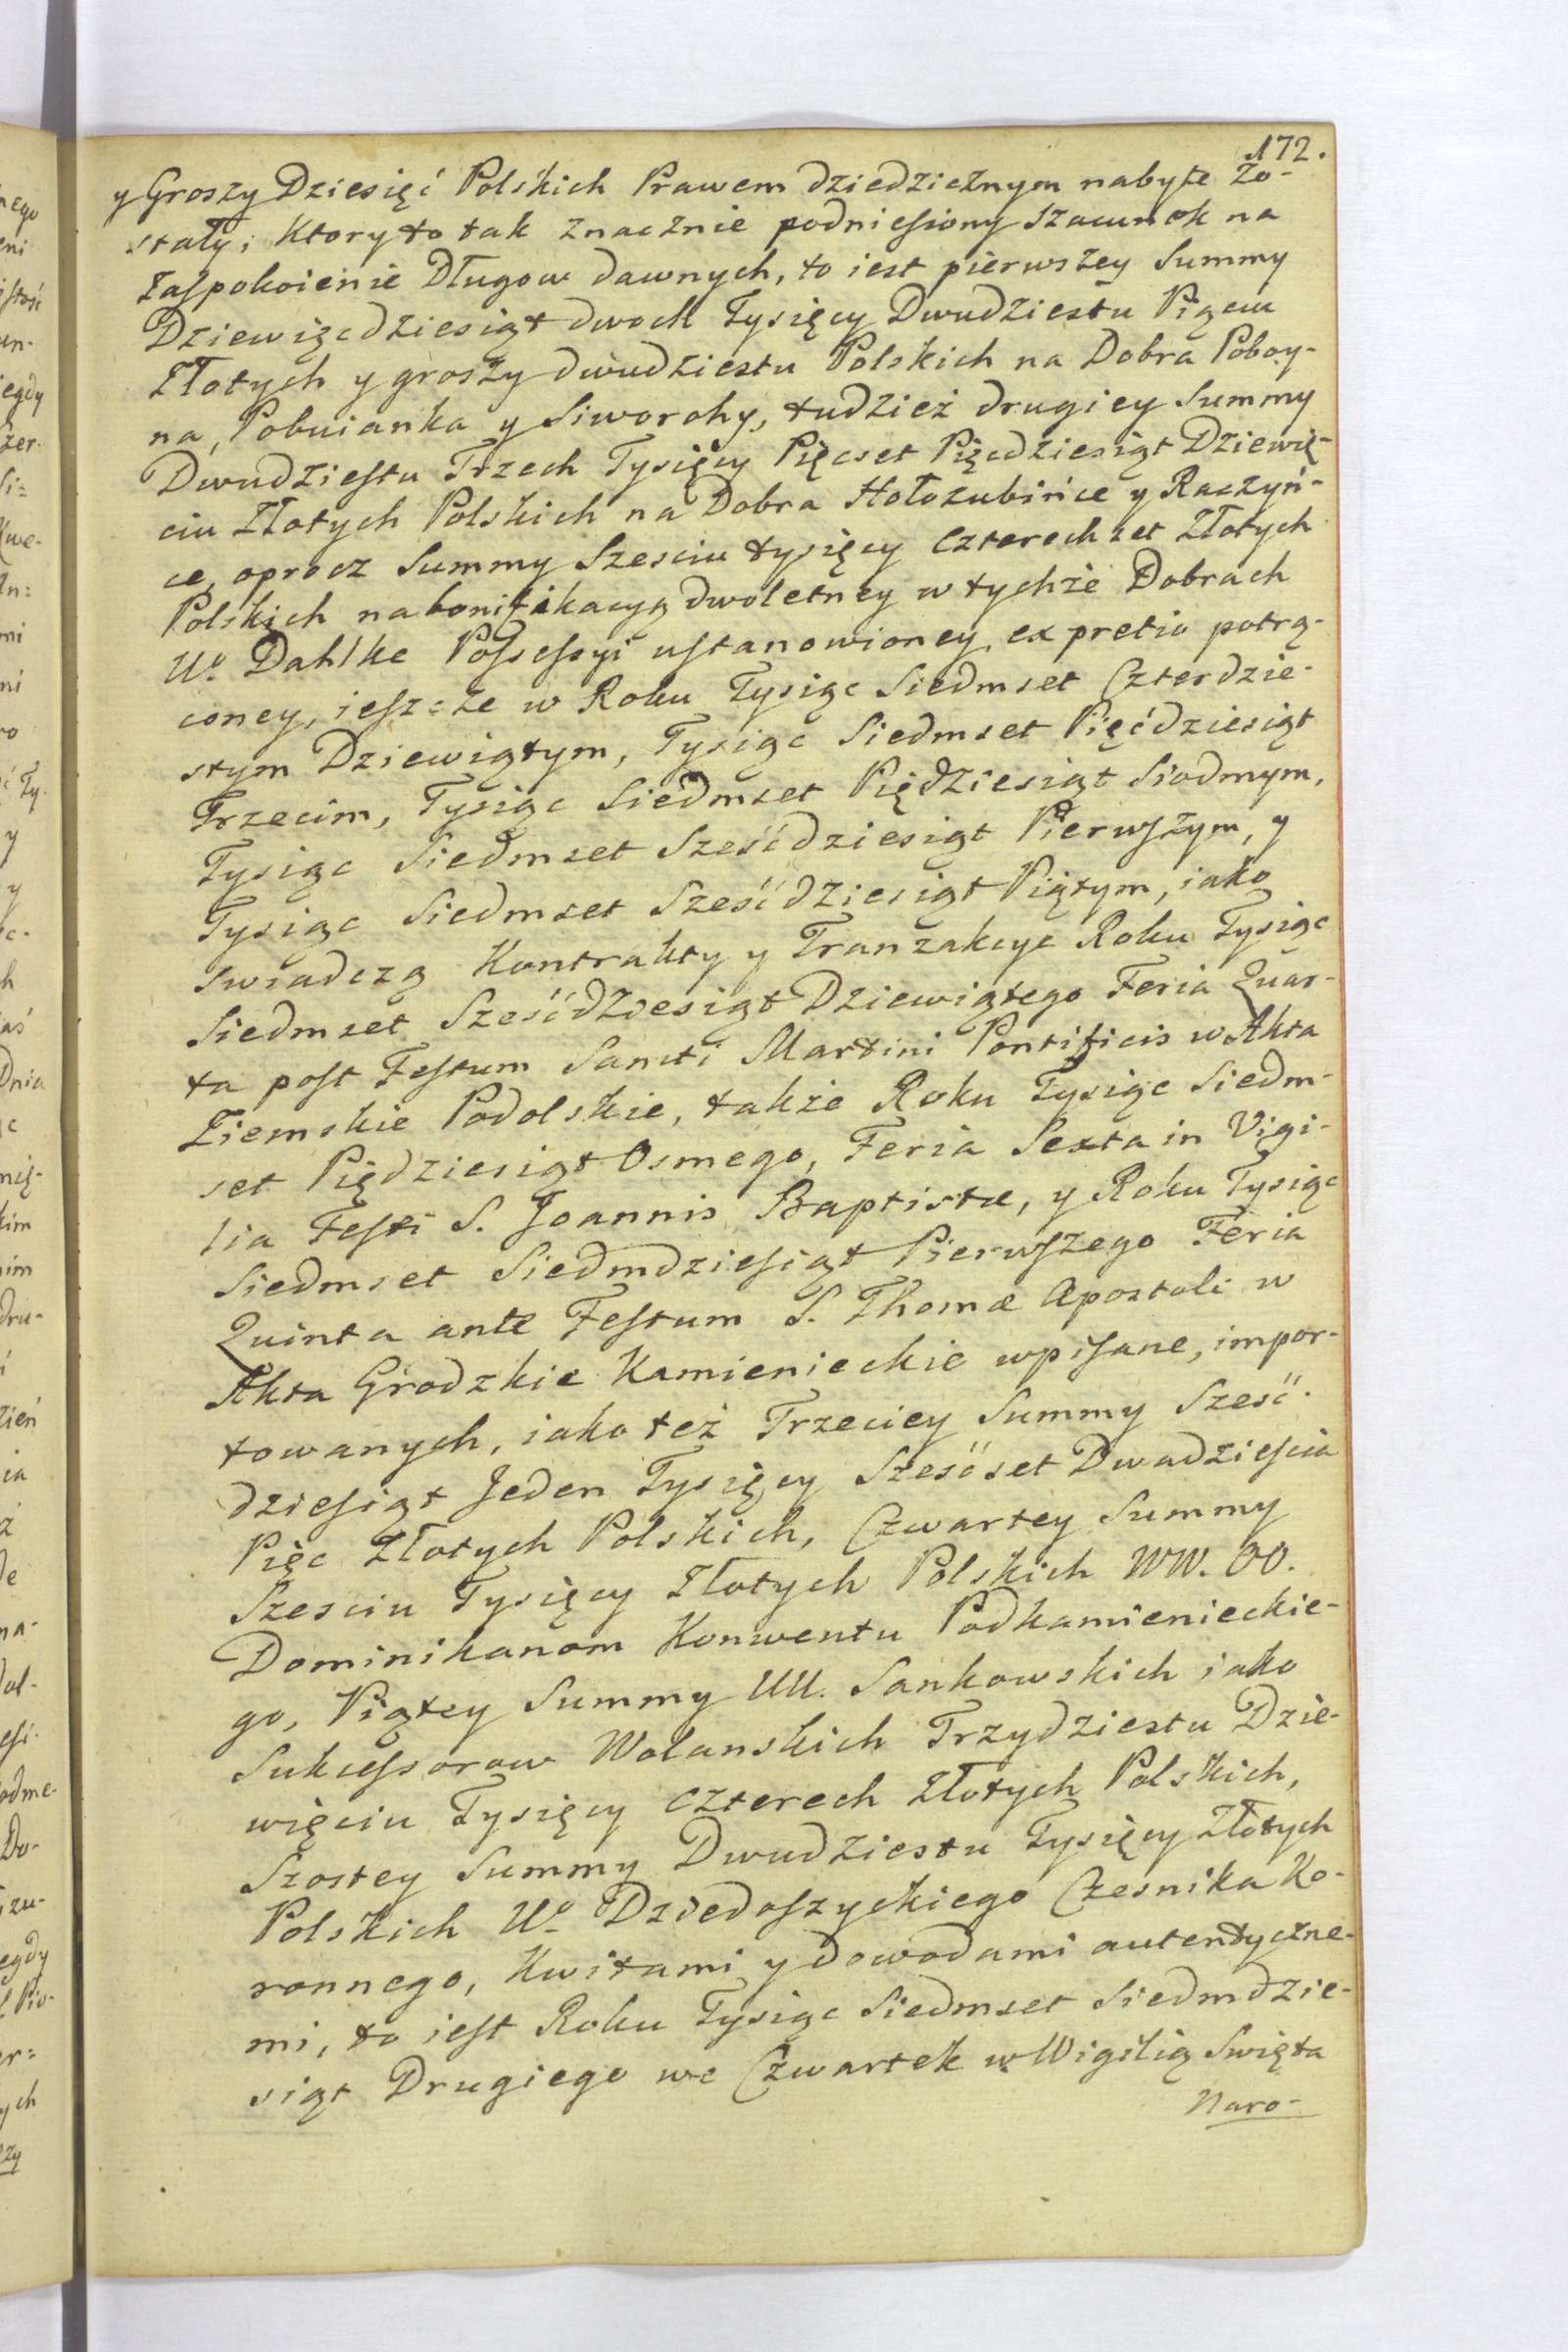 172.
y Groszy Dziesięć Polskich Prawem dziedzicznym nabyte zo-
stały; ktory to tak znacznie podniesiony szacunek na
zaspokoienie Długow dawnych, to iest pierwszey Summy
Dziewięcdziesiąt dwoch Tysięcy Dwudziestu Pięciu
Złotych y groszy dwudziestu Polskich na Dobra Poboy-
na, Pobuianka y Siworohy, tudzież drugiey Summy
Dwudziestu Trzech Tysięcy Pięcset Pięcdziesiąt Dziewię-
ciu Złotych Polskich na Dobra Hołozubińce y Raczyń-
ce, oprocz Summy Szesciu tysięcy czterechset Złotych
Polskich na bonifikacyą dwoletney w tychże Dobrach
Uo. Dahlke Possessyi ustanowioney, ex pretio potrą-
coney, ieszcze w Roku Tysiąc Siedmset Czterdzie-
stym Dziewiątym, Tysiąc Siedmset Pięćdziesiąt
Trzecim, Tysiąc Siedmset Pięдziesiąt Siodmym,
Tysiąc Siedmset Sześćdziesiąt Pierwszym, y
Tysiąc Siedmset Sześćdziesiąt Piątym, iako
swiadczą Kontrakty y Tranzakcye Roku Tysiąc
Siedmset Sześćdziesiąt Dziewiątego Feria Quar-
ta post Festum Sancti Martini Pontificis w Akta
Ziemskie Podolskie, także Roku Tysiąc Siedm-
set Piędziesiąt Osmego, Feria Sexta in Vigi-
lia Festi S. Joannis Baptistæ, y Roku Tysiąc
Siedmset Siedmdziesiąt Pierwszego Feria
Quinta ante Festum S. Thomæ Apostoli w
Akta Grodzkie Kamienieckie wpisane, impor-
towanych, iako też Trzeciey Summy Sześć-
dziesiąt Jeden Tysięcy Sześćset Dwadziescia
Pięc Złotych Polskich, Czwartey Summy
Szesciu Tysięcy Złotych Polskich WW. OO.
Dominikanom Konwentu Podkamienieckie-
go, Piątey Summy UU. Sankowskich iako
Sukcessorow Wolanskich Trzydziestu Dzie-
więciu Tysięcy czterech Złotych Polskich,
Szostey Summy Dwudziestu Tysięcy Złotych
Polskich Uo. Dziedoszyckiego Czesnika Ko-
ronnego, Kwitami y dowodami autentyczne-
mi, to iest Roku Tysiąc Siedmset Siedmdzie-
siąt Drugiego we Czwartek w Wigilią Swięta
Naro-